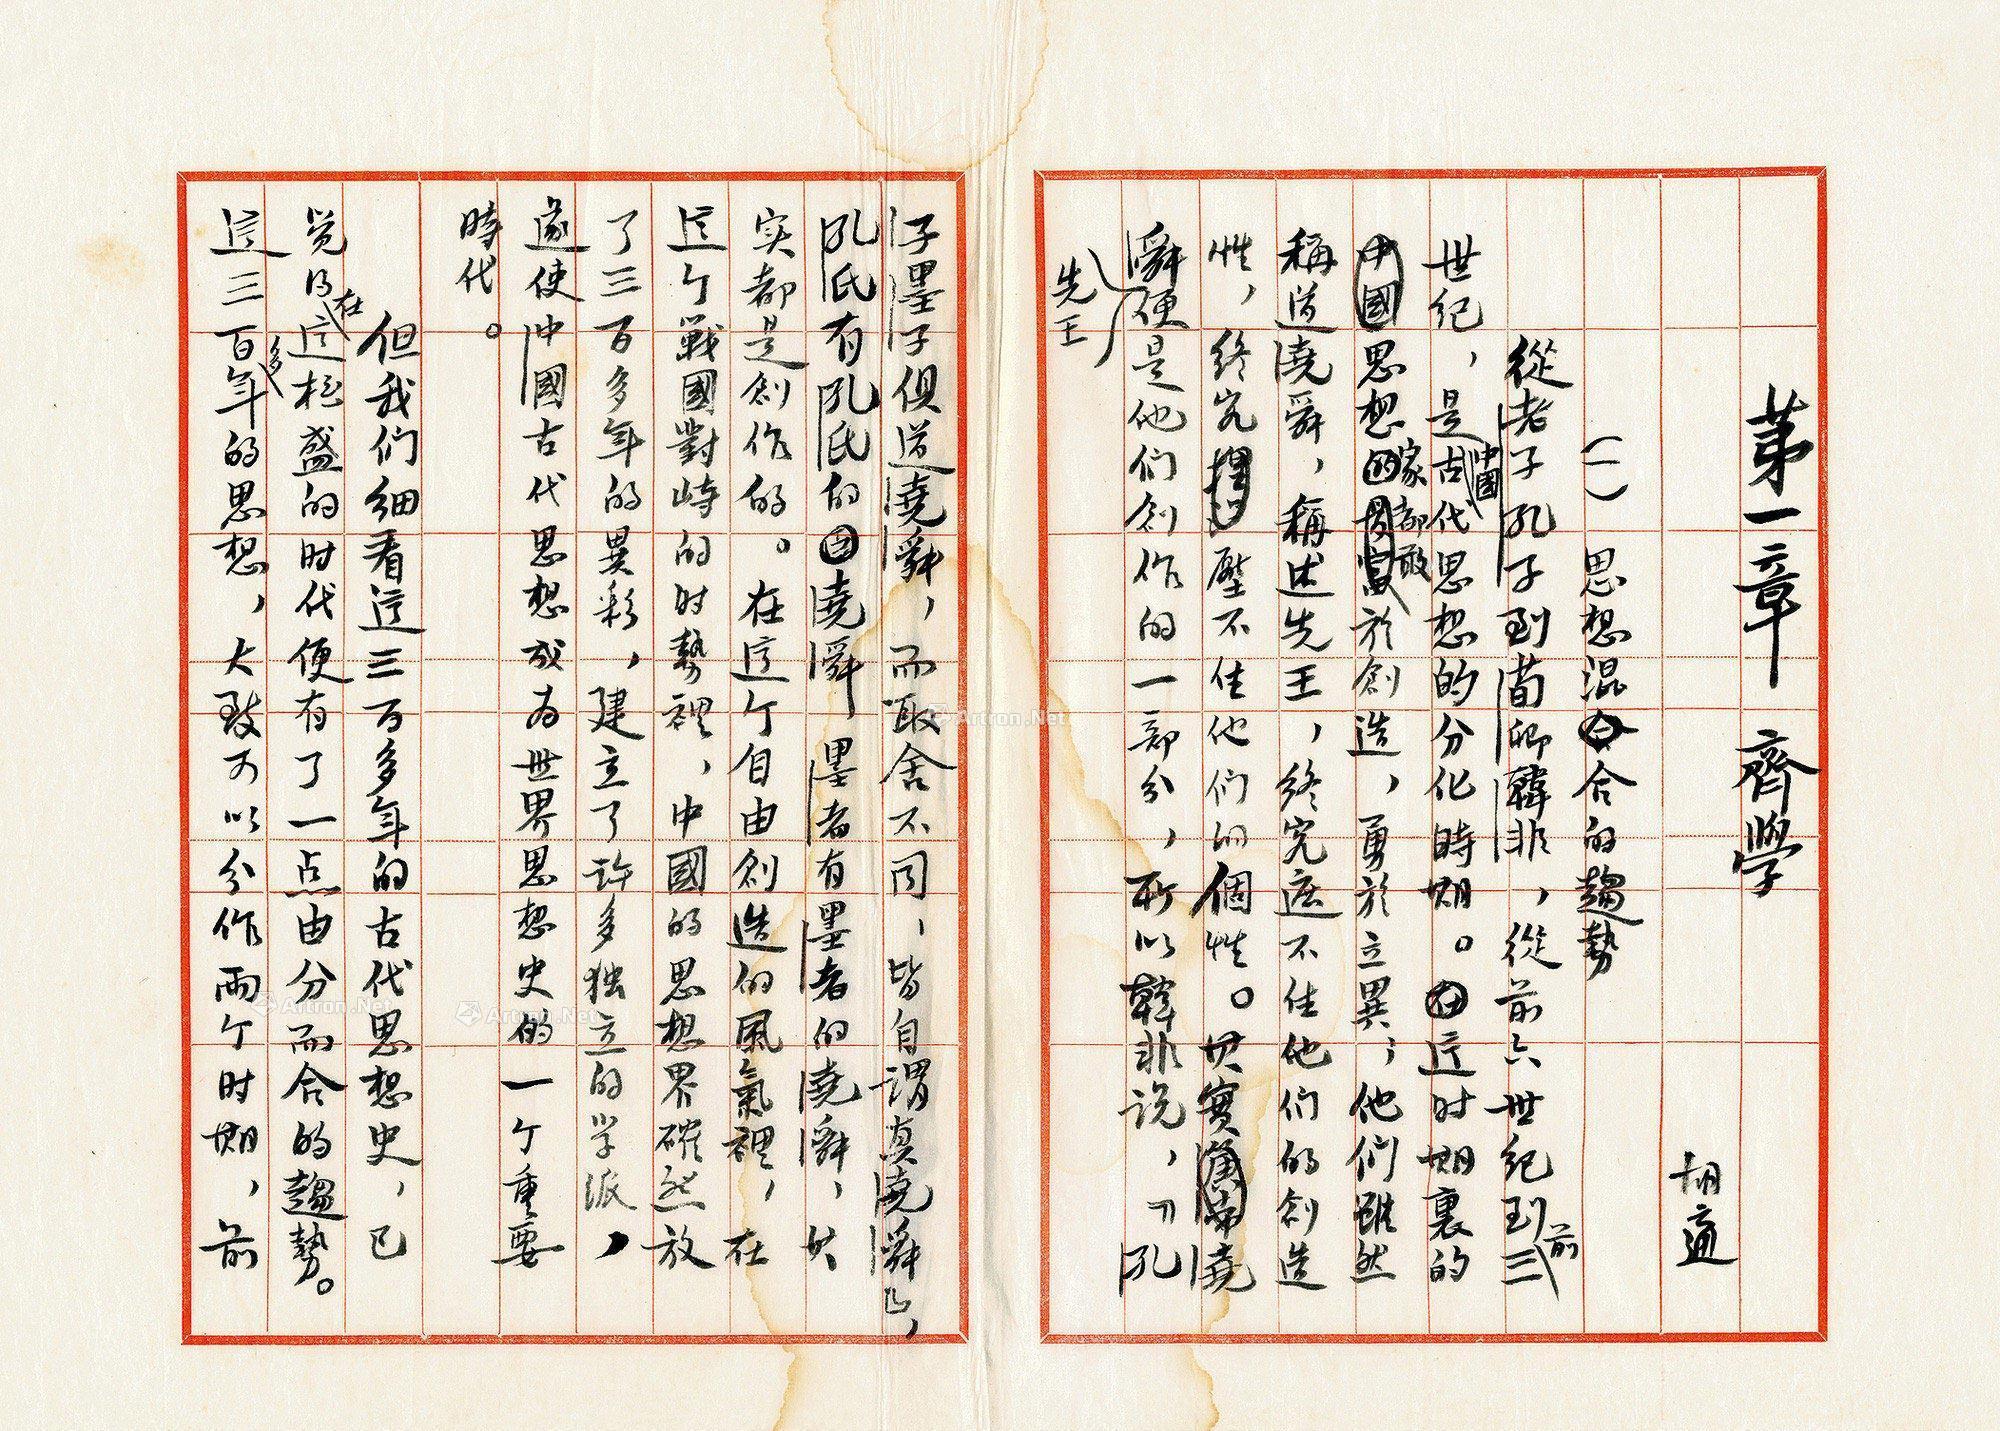 第一章 齊學
胡適
(一) 思想混合的趨勢
從老子孔子到荀卿韓非，從前六世紀到前三
世紀，是中國古代思想的分化時期。這时期裏的
思想家都敢於創造，勇於立異；他們雖然
稱道堯舜，稱述先王，終究遮不住他們的創造
性，終究壓不住他們的個性。其實堯
舜先王便是他們創作的一部分，所以韓非說，『孔
子墨子俱道堯舜，而取舍不同，皆自謂真堯舜』，
孔氏有孔氏的堯舜 墨者有墨者的堯舜，其
实都是創作的。在這个自由創造的風氣裡，在
這个戰國對峙的时勢裡，中國的思想界確然放
了三百多年的異彩，建立了許多独立的学派，
遂使中國古代思想成為世界思想史的一个重要
時代。
但我们细看這三百多年的古代思想史，已
觉得在這极盛的时代便有了一点由分而合的趨勢。
這三百多年的思想，大致可以分作兩个时期，前
Artron.Net
Artron.Net
Artron.Net